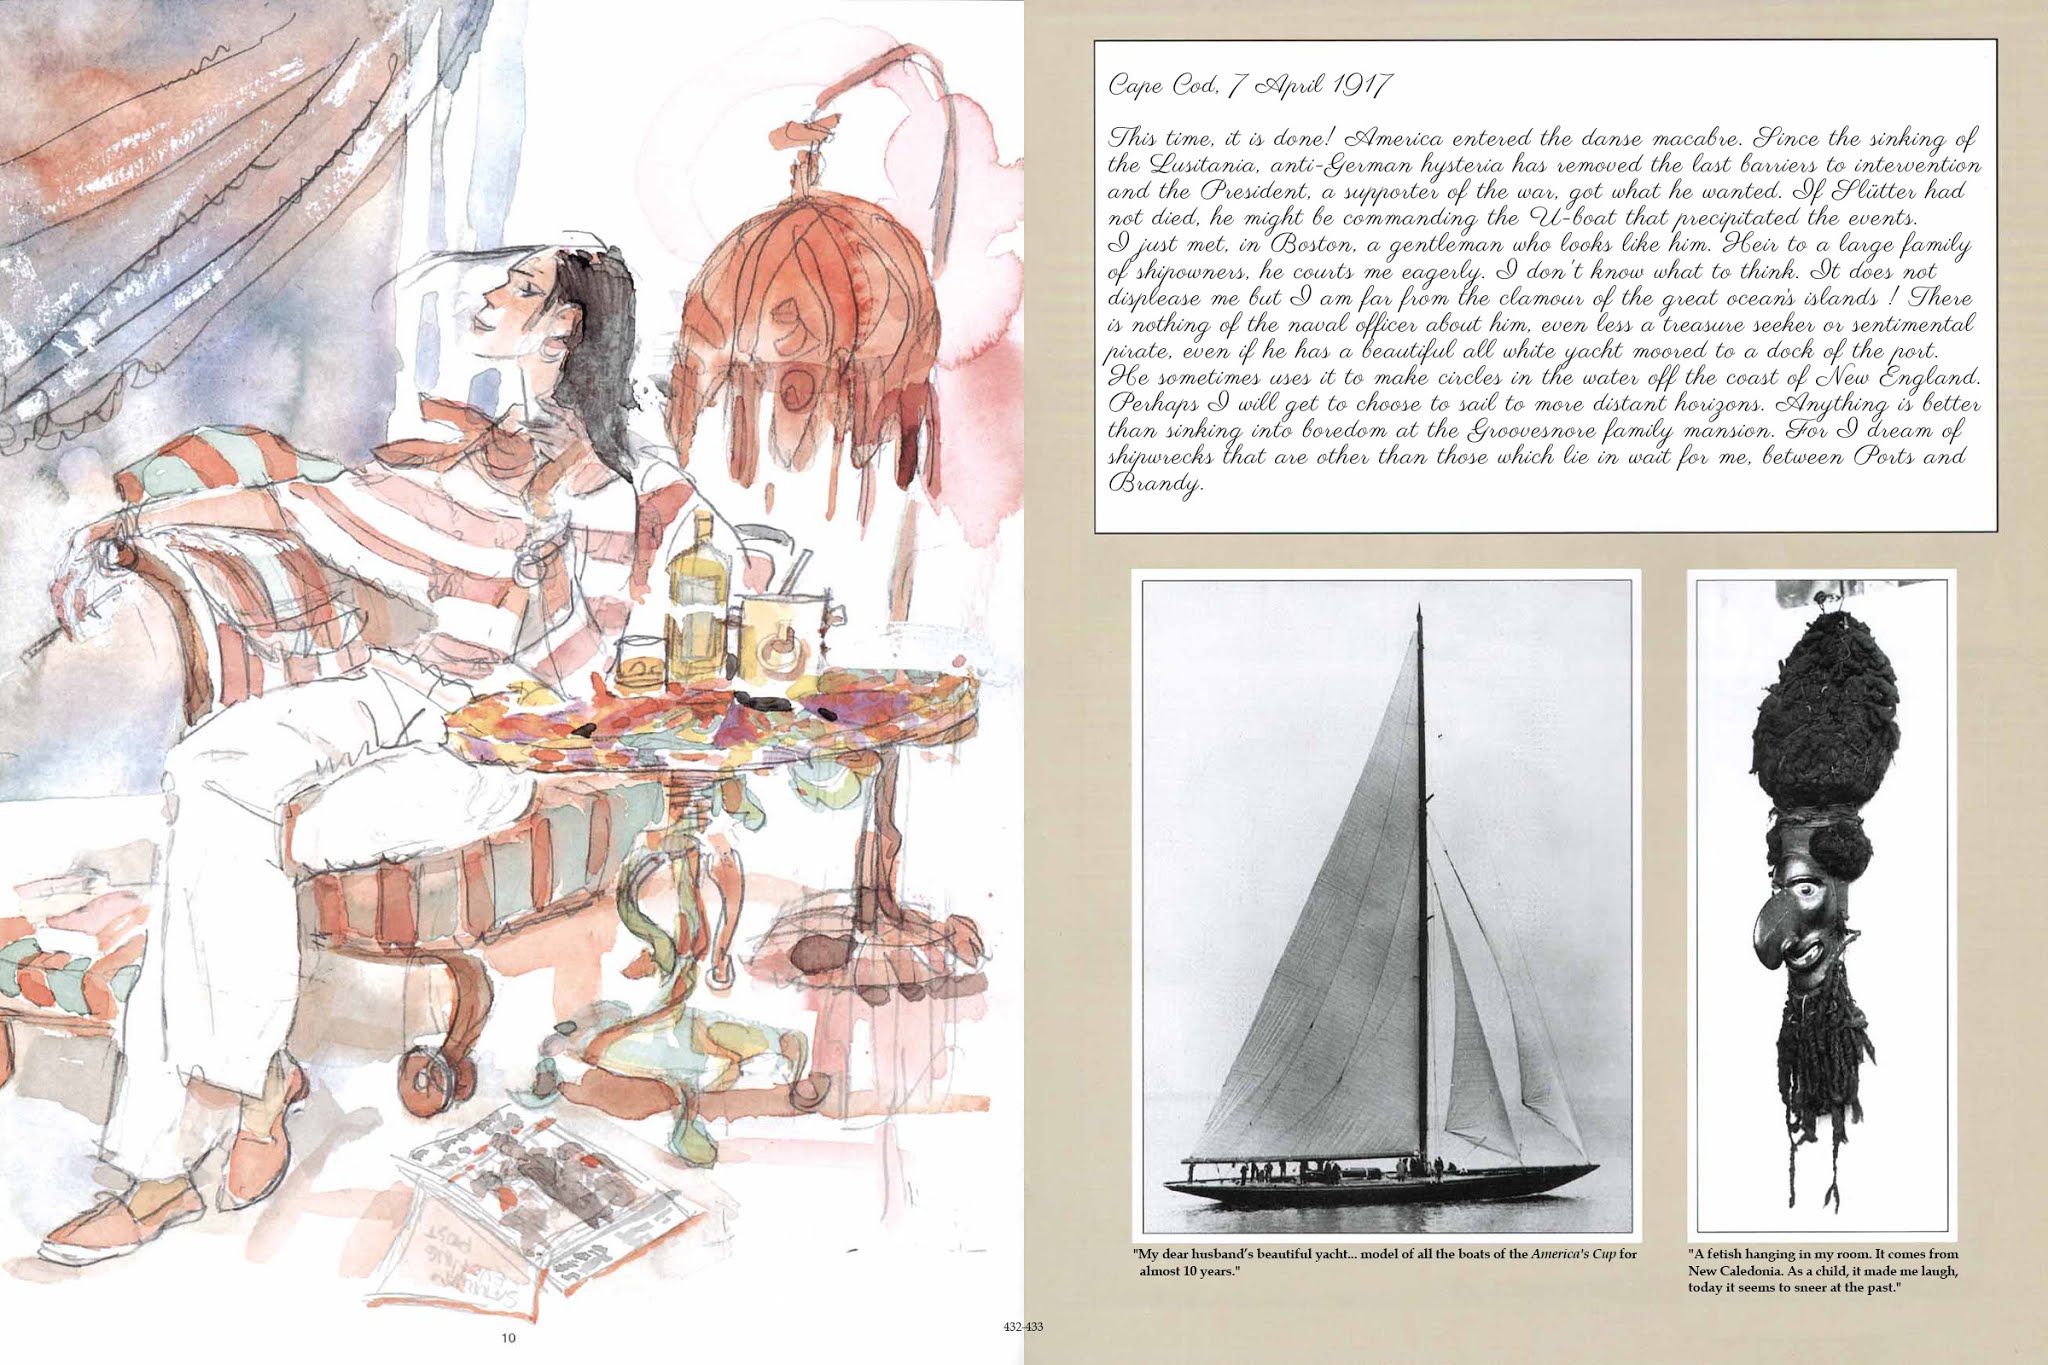 Cape Cod, 7 April 1917
This time, it is done! America entered the danse macabre. Since the sinking of
the Lusitania, anti-German hysteria has removed the last barriers to intervention
and the President, a supporter of the war, got what he wanted. If Slütter had
not died, he might be commanding the U-boat that precipitated the events.
I just met, in Boston, a gentleman who looks like him. Heir to a large family
of shipowners, he courts me eagerly. I don't know what to think. It does not
displease me but I am far from the clamour of the great ocean's islands ! There
is nothing of the naval officer about him, even less a treasure seeker or sentimental
pirate, even if he has a beautiful all white yacht moored to a dock of the port.
He sometimes uses it to make circles in the water off the coast of New England.
Perhaps I will get to choose to sail to more distant horizons. Anything is better
than sinking into boredom at the Groovesnore family mansion. For I dream of
shipwrecks that are other than those which lie in wait for me, between Ports and
Brandy.
"My dear husband's beautiful yacht... model of all the boats of the America's Cup for
almost 10 years."
"A fetish hanging in my room. It comes from
New Caledonia. As a child, it made me laugh,
today it seems to sneer at the past."
POST
10
432-433